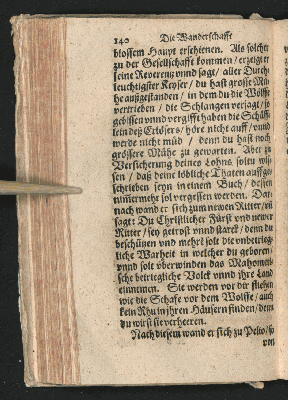 140 Die Wanderschafft
blossem Haupt erschienen. Als solcher
zu der Gesellschafft kommen / erzeigt er
seine Reverentz vnnd sagt / aller Durch-
leuchtigster Keyser / du hast grosse Mü-
he außgestanden / in dem du die Wölffe
vertrieben / die Schlangen verjagt / so
gebissen vnnd vergifft haben die Schäff-
lein deß Erlösers / höre nicht auff / vnnd
werde nicht müd / denn du hast noch
grössere Mühe zu gewarten. Aber zu
Versicherung deines Lohns soltu wis-
sen / daß deine löbliche Thaten auffge-
schrieben seyn in einem Buch / dessen
nimmermehr sol vergessen werden. Dar-
nach wand er sich zum newen Ritter / vñ
sagt: Du Christlicher Fürst vnd newer
Ritter / sey getrost vnnd starck / denn du
beschützen vnd mehrẽ solt die vnbetrieg-
liche Warheit in welcher du geboren /
vnnd solt vberwinden das Mahometi-
sche betriegliche Volck vnnd ihre Land
einnemen. Sie werden vor dir fliehen
wie die Schafe vor dem Wolffe / auch
kein Rhu in jhren Häusern finden / denn
du wirst sie verheeren.
Nach diesem wand er sich zu Pelio / so
von